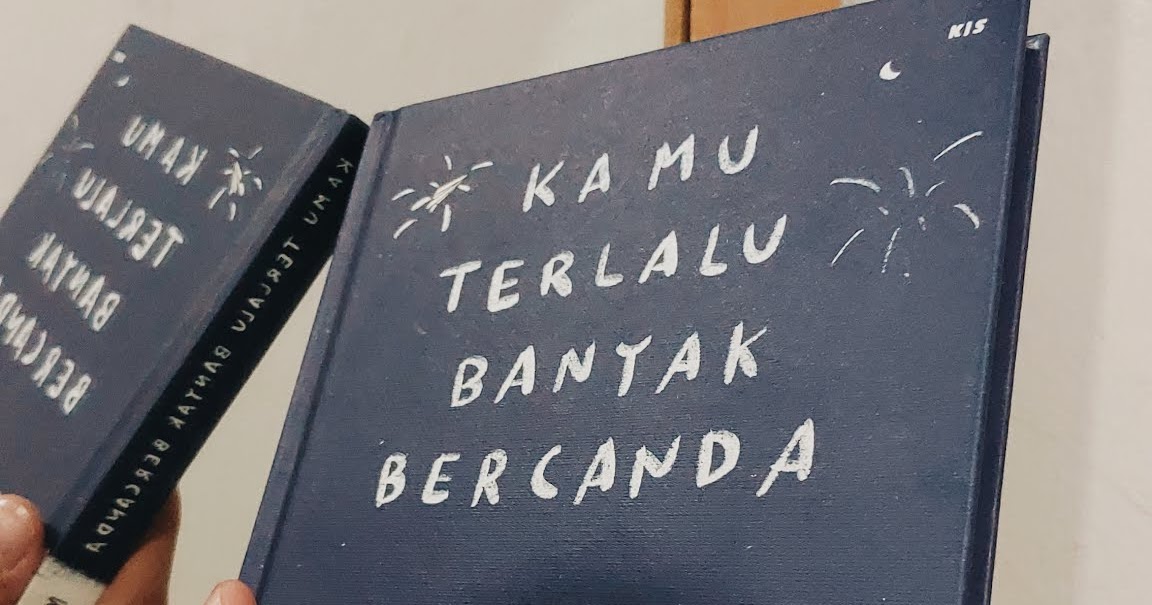 KIS
KAMU
TERLALU
BANTAK
BERCANDA
KAMU TERLALU BANTAK BERCANDA
KAMU
TERLALU
BANTAK
BERCANDA